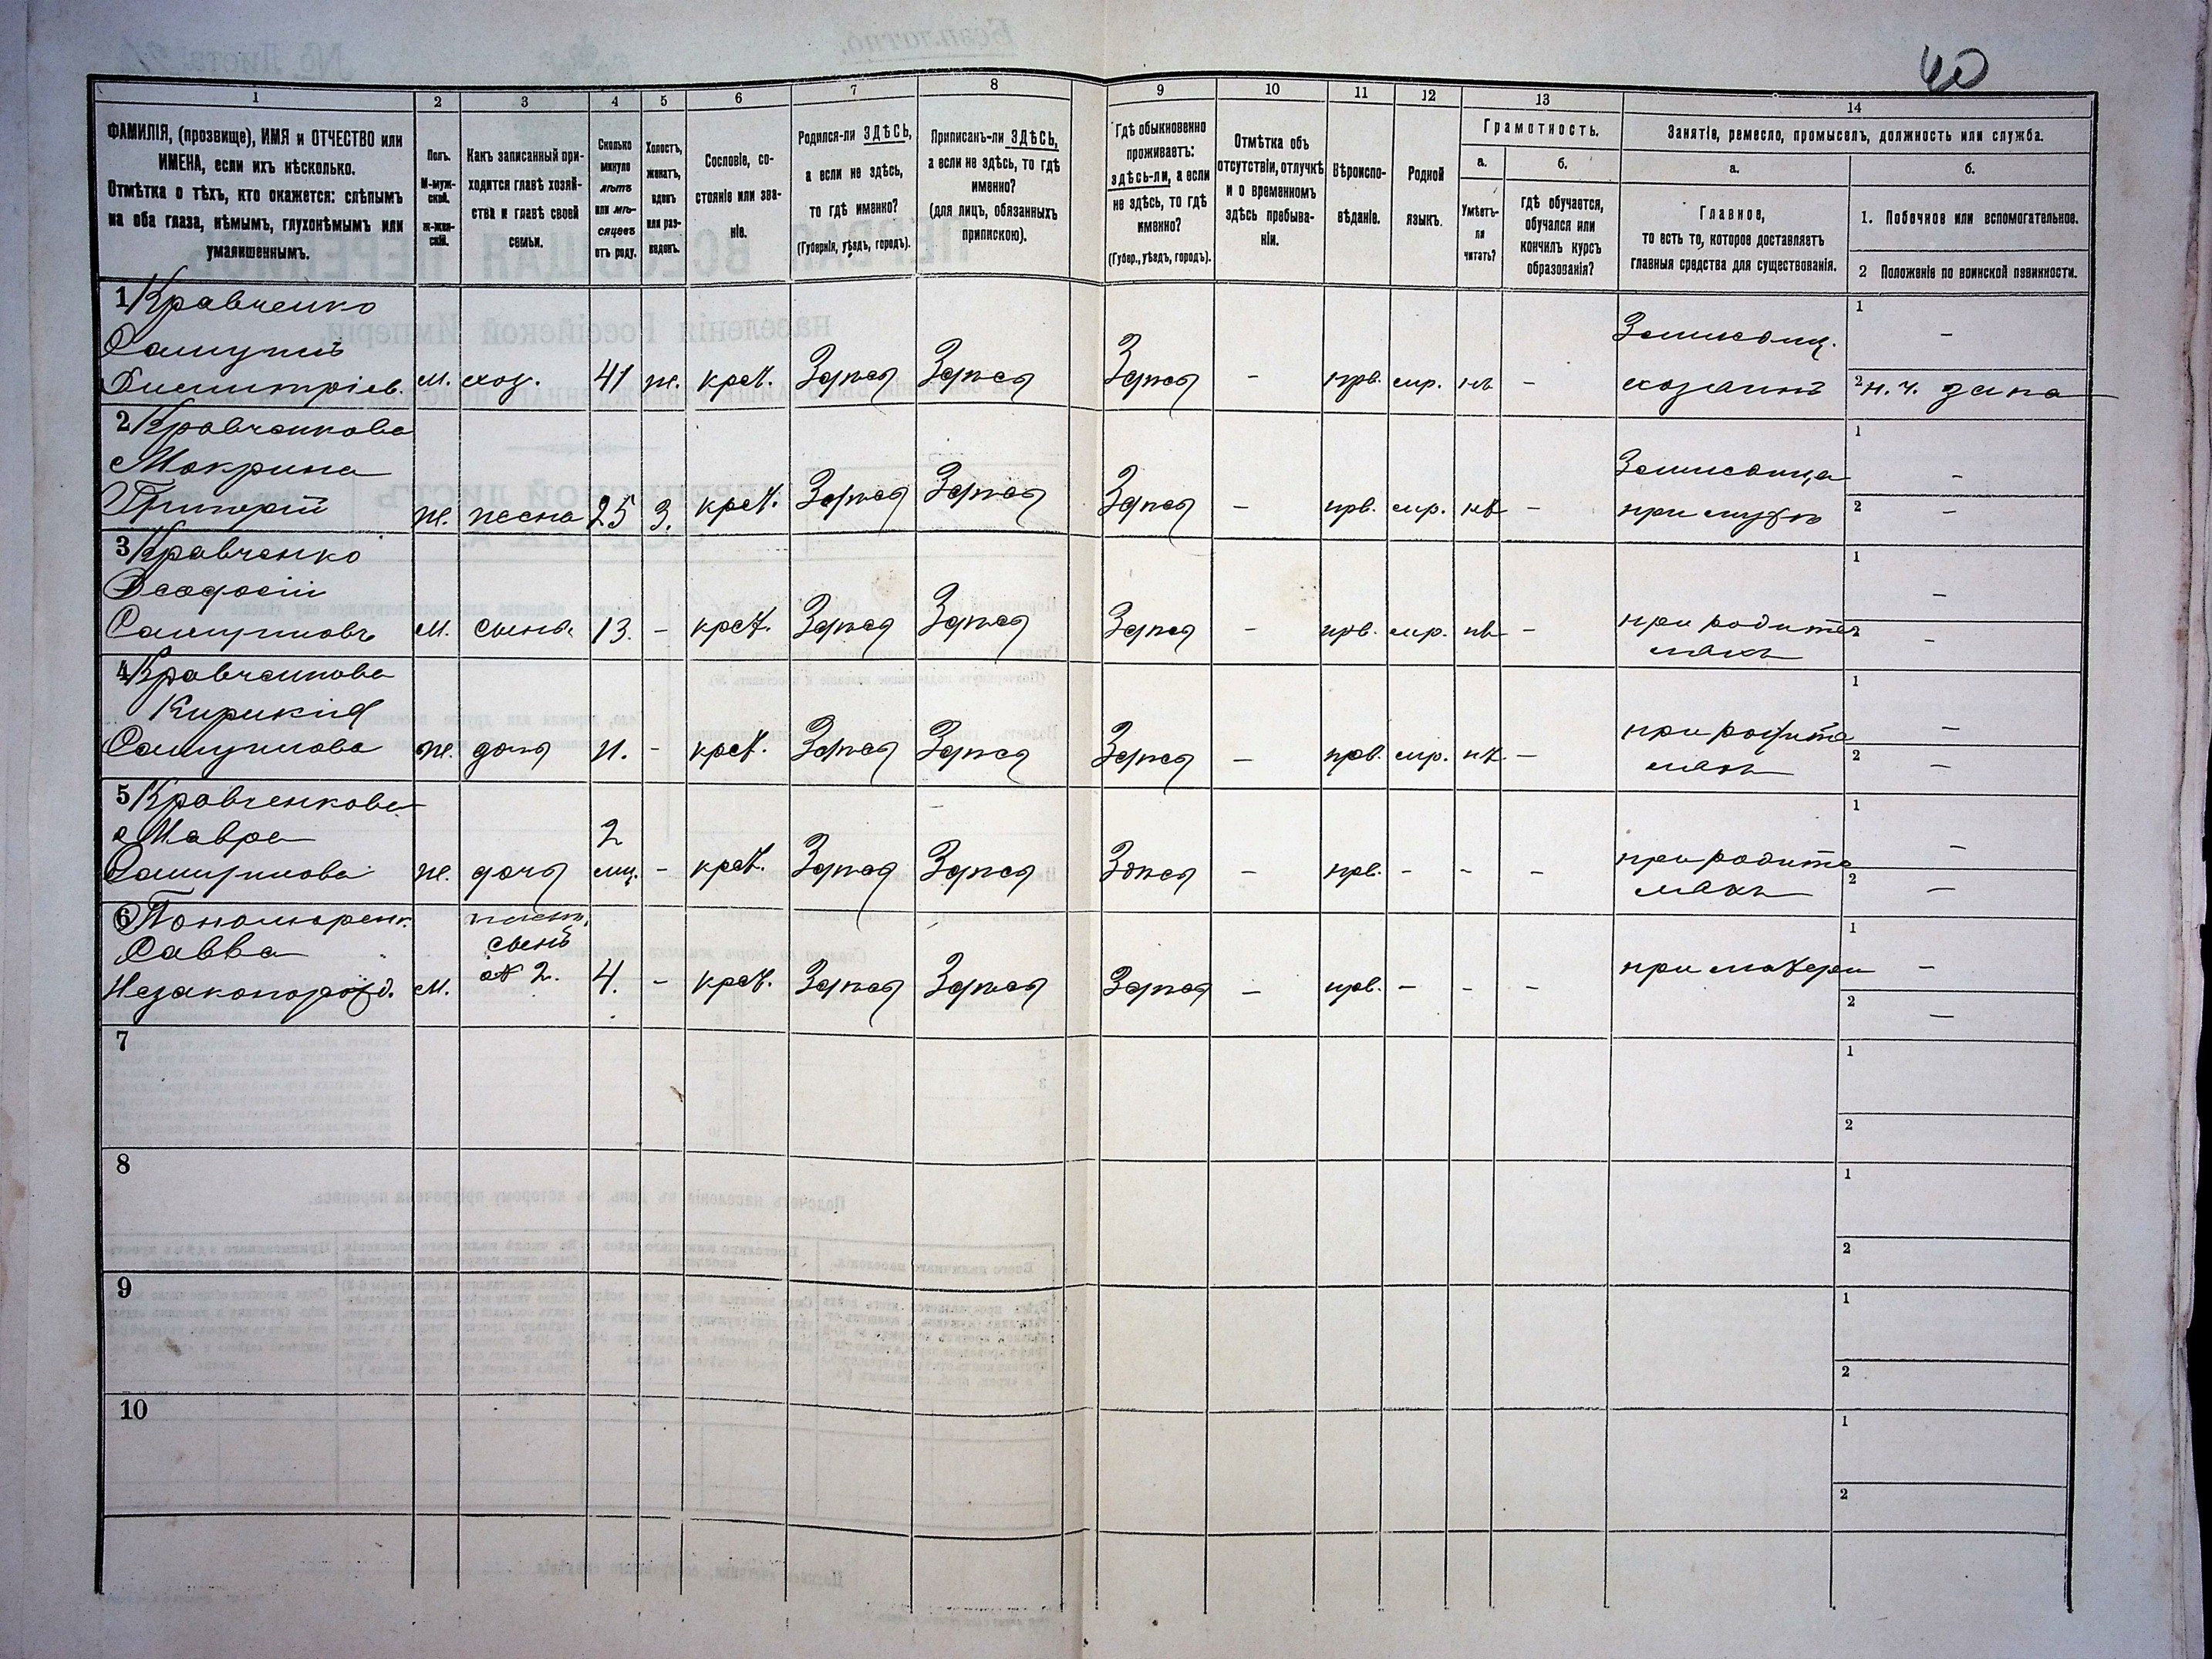 40
1
2
3
4
5
6
7
8
9
10
11
12
13
14
ФАМИЛІЯ, (прозвище), ИМЯ и ОТЧЕСТВО или
ИМЕНА, если ихъ нѣсколько.
Отмѣтка о тѣхъ, кто окажется: слѣпымъ
на оба глаза, нѣмымъ, глухонѣмымъ или
умалишеннымъ.
Полъ.
М-муж-
ской.
ж-жен-
скій.
Какъ записанный при-
ходится главѣ хозяй-
ства и главѣ своей
семьи.
Сколько
минуло
лѣтъ
или мѣ-
сяцевъ
отъ роду.
Холостъ,
женатъ,
вдовъ
или раз-
веденъ.
Сословіе, со-
стояніе или зва-
ніе.
Родился-ли ЗДѢСЬ,
а если не здѣсь,
то гдѣ именно?
(Губернія, уѣздъ, городъ).
Приписанъ-ли ЗДѢСЬ,
а если не здѣсь, то гдѣ
именно?
(для лицъ, обязанныхъ
припискою).
Гдѣ обыкновенно
проживаетъ:
здѣсь-ли, а если
не здѣсь, то гдѣ
именно?
(Губер., уѣздъ, городъ).
Отмѣтка объ
отсутствіи, отлучкѣ
и о временномъ
здѣсь пребыва-
ніи.
Вѣроиспо-
вѣданіе.
Родной
языкъ.
Грамотность.
а.
б.
Умѣетъ-
ли
читать?
гдѣ обучается,
обучался или
кончилъ курсъ
образованія?
Занятіе, ремесло, промыселъ, должность или служба.
а.
б.
Главное,
то есть то, которое доставляетъ
главныя средства для существованія.
1. Побочное или вспомогательное.
2 Положеніе по воинской повинности.
1 Кравченко
Самуилъ
Дмитріев. м. хоз. 41 ж. крест. Здѣсь Здѣсь Здѣсь - прв. мр. нѣ -
Земледѣлец.
хозяинъ
1 -
2 н. ч. запа
2 Кравченкова
Макрина
ж. жена 25 З. крест. Здѣсь Здѣсь Здѣсь - прв. мр. нѣ -
при мужѣ
1 -
2 -
3 Кравченко
Феодосій
Самуиловъ м. сынъ 13. - крест. Здѣсь Здѣсь Здѣсь - прв. мр. нѣ -
при родите
ляхъ
1 -
2 -
4 Кравченкова
Самуилова ж. дочь 11. - крест. Здѣсь Здѣсь Здѣсь - прв. мр. нѣ -
при родите
ляхъ
1 -
2 -
5 Кравченкова
Мавра
Самуилова ж. дочь 2 мц. - крест. Здѣсь Здѣсь Здѣсь - прв. - - -
при родите
ляхъ
1 -
2 -
6 Пономаренк.
Савва
Незаконорожд. м. сынъ
№ 2. 4. - крест. Здѣсь Здѣсь Здѣсь - прв. - - -
при матери
1 -
2 -
7
1
2
8
1
2
9
1
2
10
1
2